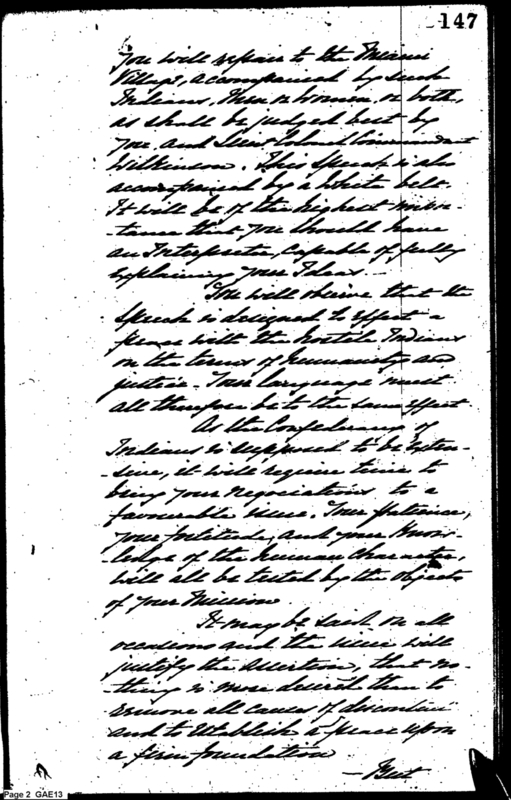 147
you will repair to the Miami
Village, accompanied by such
Indians, Men or women, or both,
as shall be judged best by
you and Lieut Colonel Commandant
Wilkinson. This Speech is also
accompanied by a white belt.
It will be of the highest impor-
tance that you should have
an Interpreter, capable of fully
explaining your Ideas.
You will observe that the
Speech is designed to effect a
peace with the hostile Indians
on the terms of humanity and
justice. Your language must
all therefore be to the same effect.
As the Confederacy of
Indians is supposed to be exten-
-sive, it will require time to
bring your negociations to a
favourable issue. Your patience,
your fortitude, and your Know-
-ledge of the human Character,
will all be tested by the objects
of your Mission
It may be said on all
occasions and the issue will
justify the assertion, that no-
-thing is more desired than to
remove all causes of discontent
and to establish a peace upon
a firm foundation
-But
Page 2 GAE13